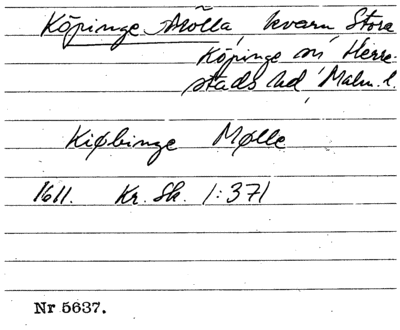 Köpinge Mölla, kvarn Stora
Köpinge sn Herre-
stads hd, Malm. l.
Kiøbinge Mølle
1611. Kr. Sk. 1:371
Nr 5637.